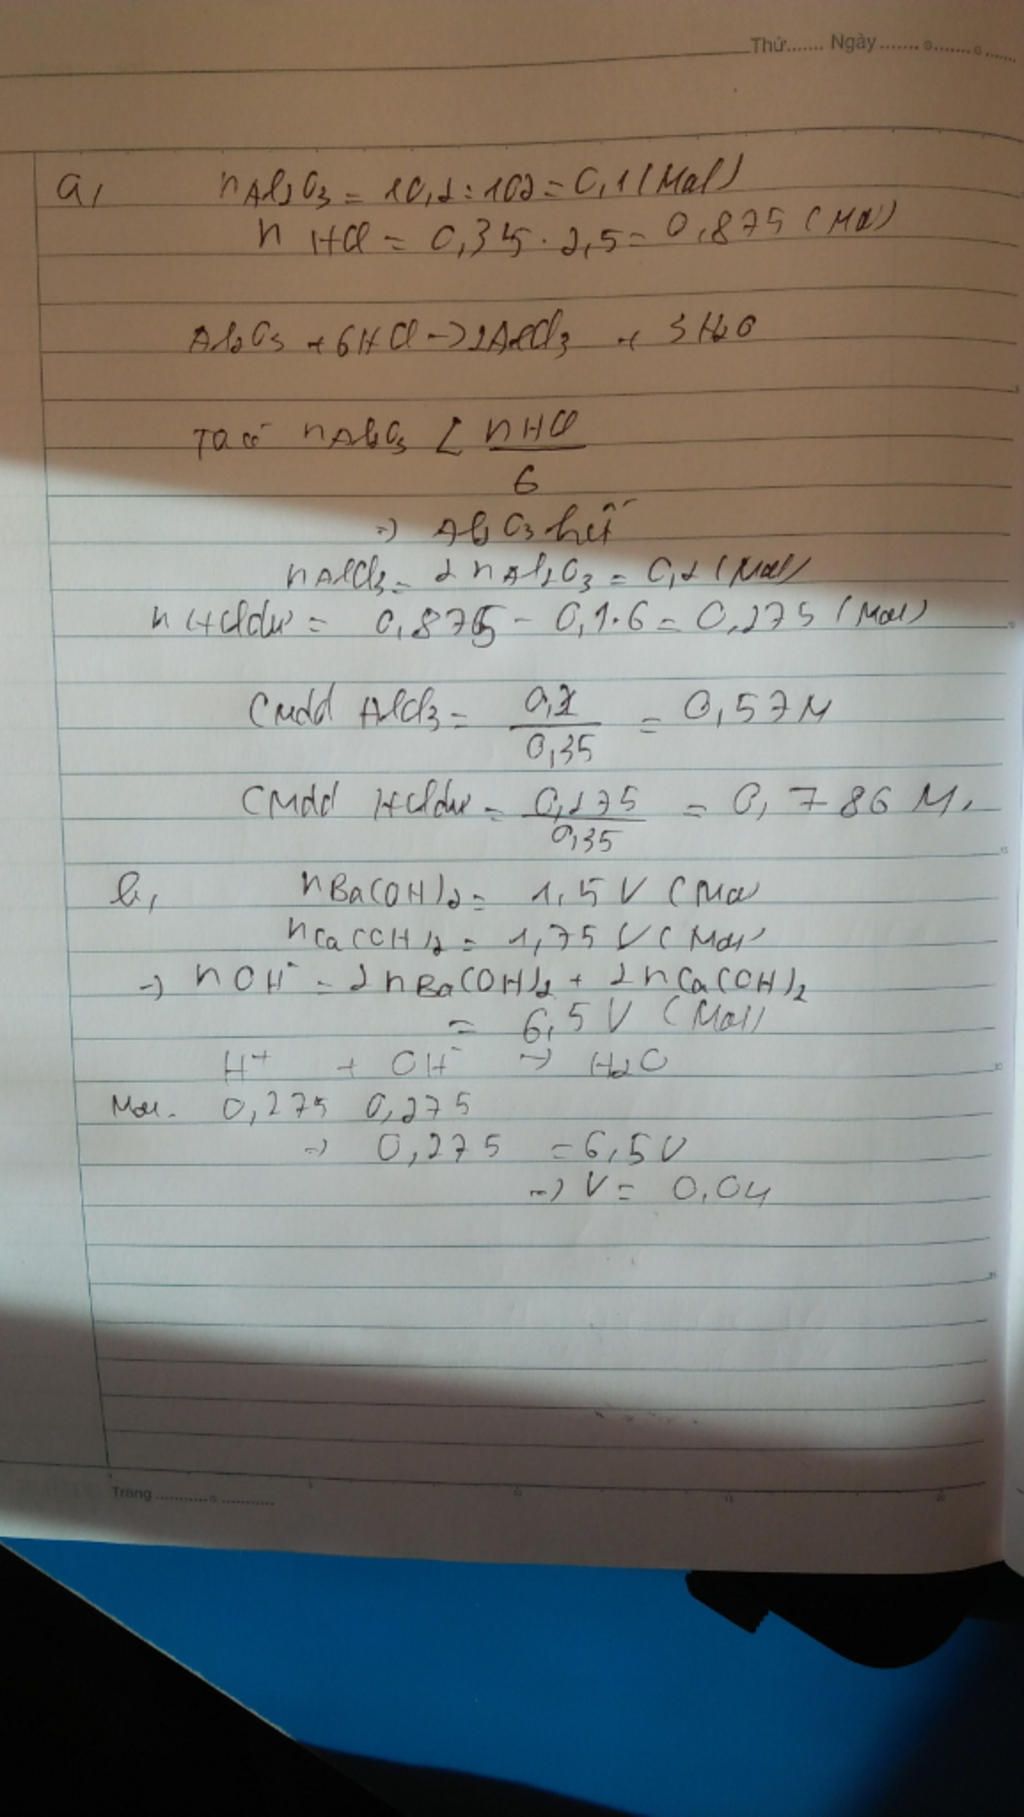 Thứ....... Ngày ....... o....... o ......
a,
nAl2O3 = 10,2 : 102 = 0,1 (Mol)
n HCl = 0,35 . 2,5 = 0,875 (Mol)
Al2O3 + 6HCl -> 2AlCl3 + 3H2O
Ta có nAl2O3 < nHCl / 6
=> Al2O3 hết
nAlCl3 = 2nAl2O3 = 0,2 (Mol)
n HCl dư = 0,875 - 0,1.6 = 0,275 (Mol)
CMdd AlCl3 = 0,2 / 0,35 = 0,57 M
CMdd HCl dư = 0,275 / 0,35 = 0,786 M.
b, nBa(OH)2 = 1,5 V (Mol
nCa(OH)2 = 1,75 V (Mol)
-> nOH- = 2nBa(OH)2 + 2nCa(OH)2
= 6,5 V (Mol)
H+ + OH- -> H2O
Mol. 0,275 0,275
=> 0,275 = 6,5V
=> V = 0,04
Trang ........... o ...........